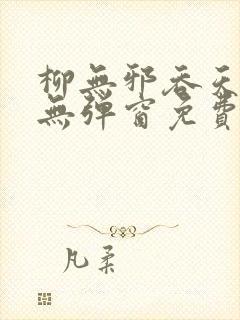 柳無邪吞天
無彈窗免費
凡柔